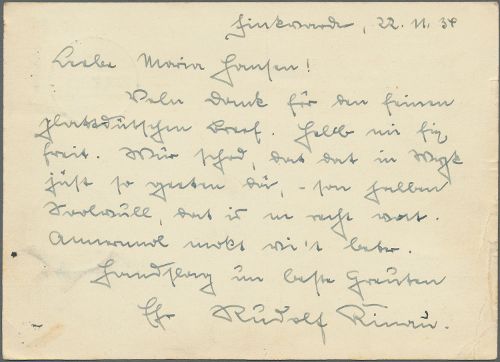 Finkwarder, 22. 11. 34
Leebe Maria Hansen!
Veln Dank för den feinen
plattdütschen Breef. Hebb mi fix
freit. Wür schod, dat dat in Wyk
jüst so geeten dä, - son halben
, dat is m recht wort.
Annermol mokt wi't beter.
Handslag un beste Greuten
Ehr Rudolf Kinau.